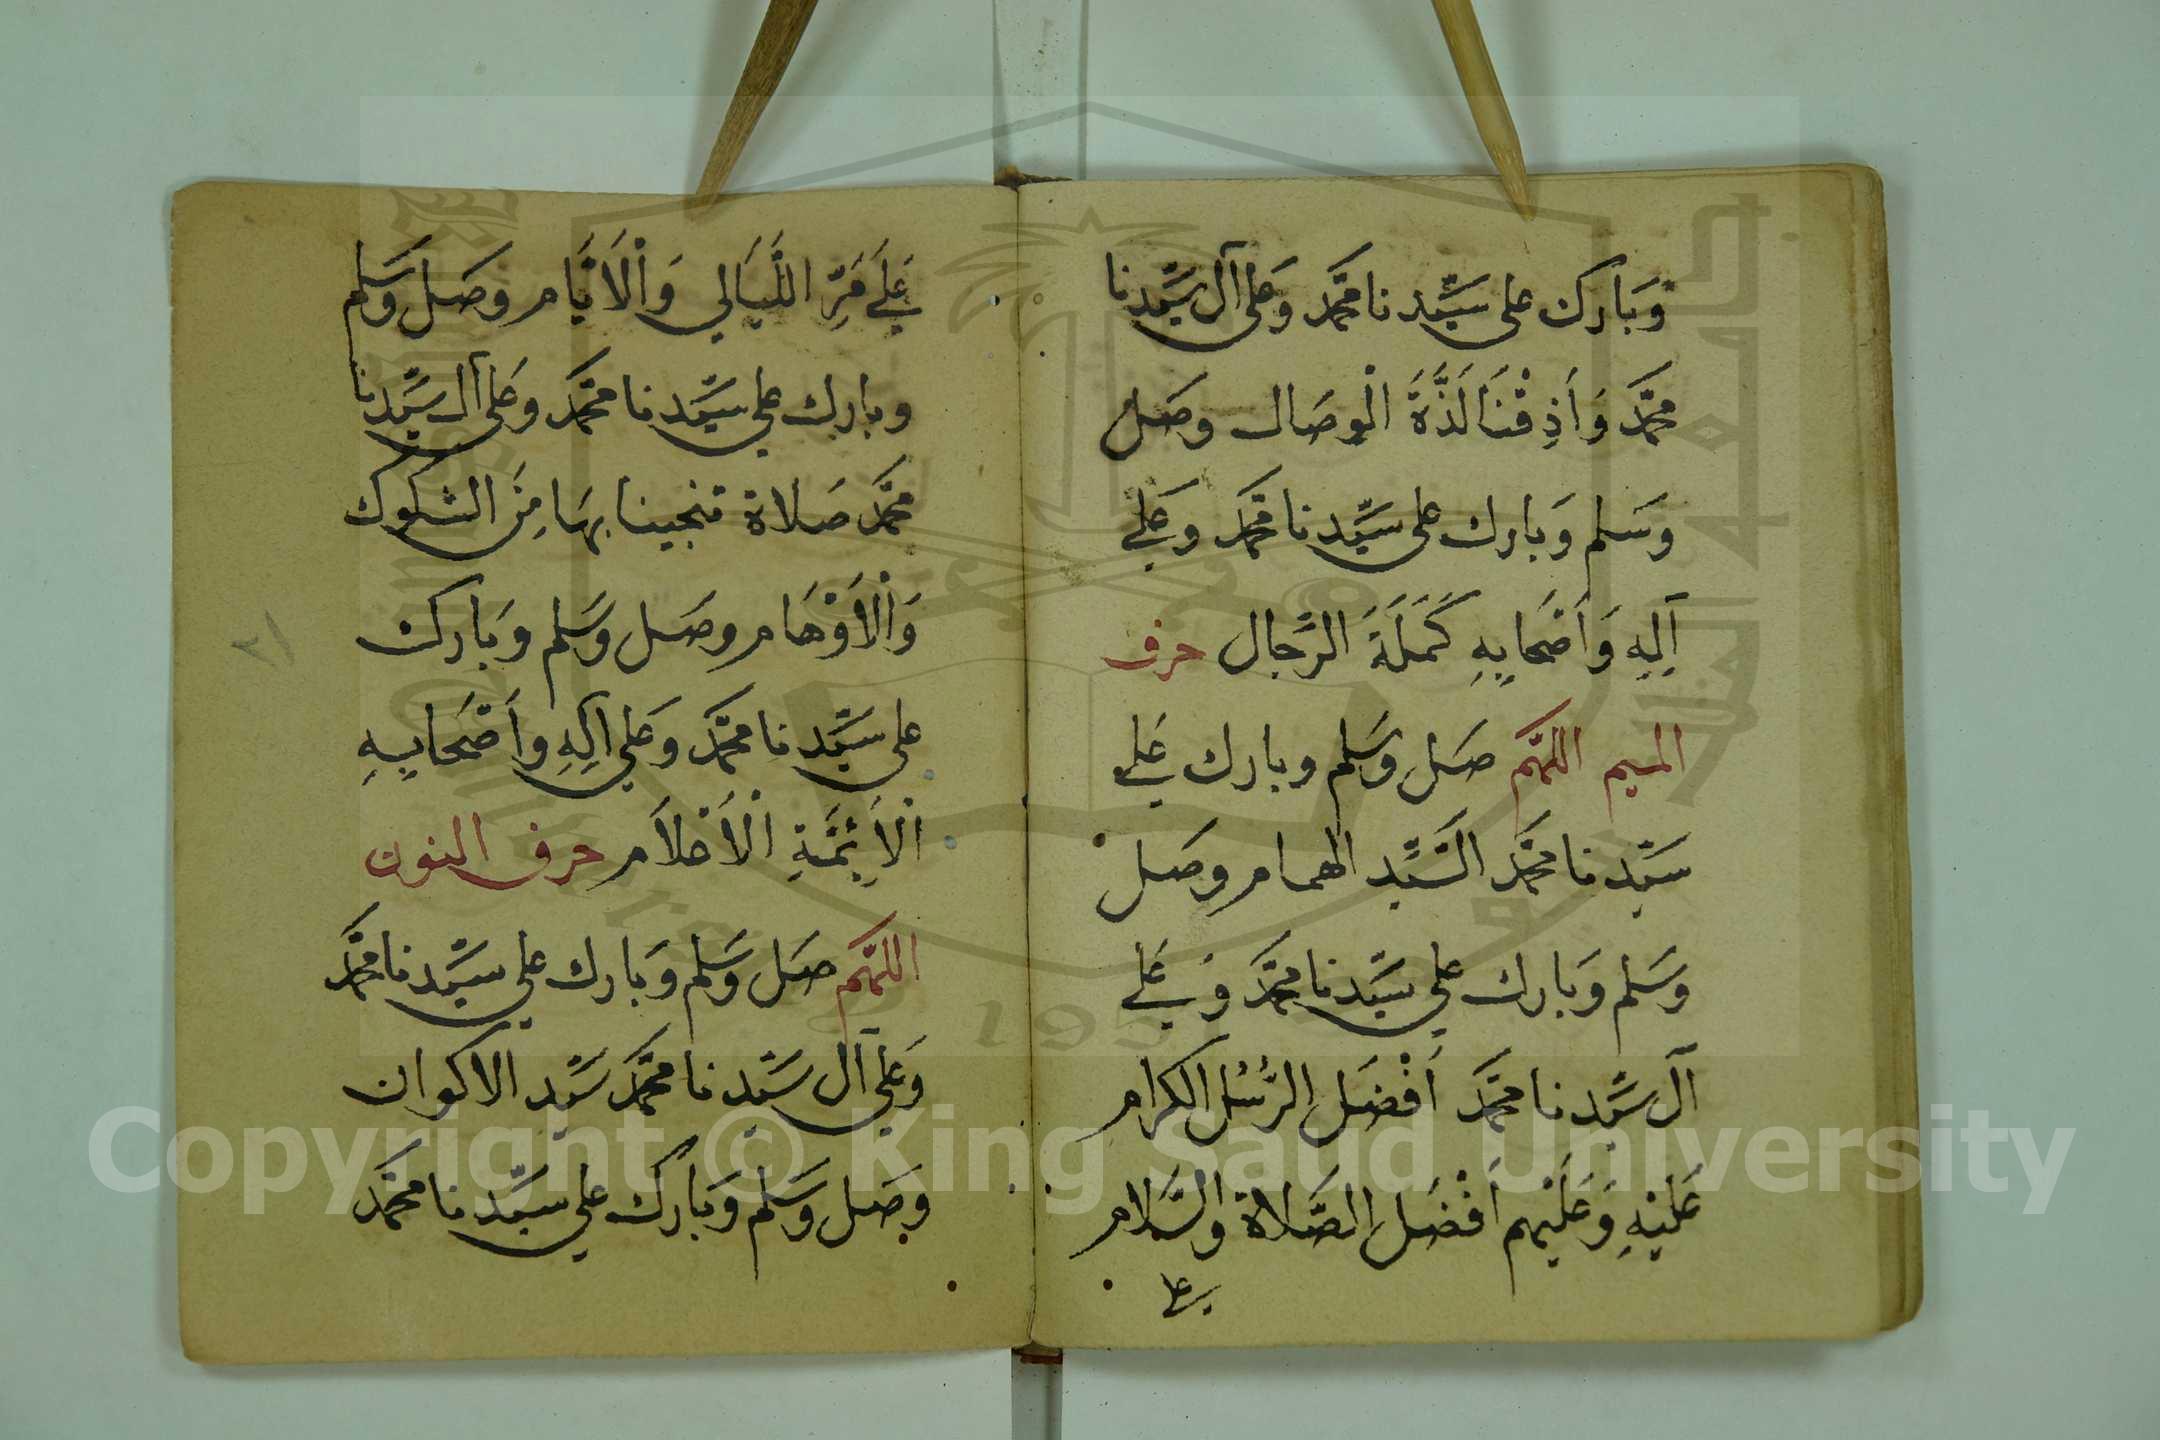 وَبَارك على سَيِّدنا محَمَّد وَعلى آل سَيِّدنا
محَمَّد وَأَذِقْنَا لَذَّةَ الْوِصَال وصَل
وَسَلم وَبارك على سَيِّدنا محَمَّد وَعَلى
آلِهِ وَأَصْحَابِهِ كَمَلَةَ الرِّجال حرف
الميم اللهُمَّ صَل وَسَلم وبارك عَلى
سَيِّدنا محَمَّد السَّيِّد الهمام وصَل
وَسَلم وَبارك على سَيِّدنا محَمَّد وَعَلى
آل سَيِّدنا محَمَّد أَفْضَل الرُّسُل الكرام
عَلَيْهِ وَعَلَيْهم أَفْضَل الصَّلاة والسَّلام
على
عَلى مَرِّ اللَّيَالي وَالْأَيَّام وصَل وَسَلم
وبارك على سَيِّدنا محَمَّد وعَلى آل سَيِّدنا
محَمَّد صَلاة تنجينا بهَا مِنَ الشكوك
وَالْأَوْهَام وصَل وَسَلم وَبَارك
على سَيِّدنا محَمَّد وَعَلى آلِهِ وأَصْحَابِهِ
الْأَئِمَّةِ الْأَعْلاَم حرف النون
اللهُمَّ صَل وَسَلم وَبارك على سَيِّدنا محَمَّد
وَعَلى آل سَيِّدنا محَمَّد سَيِّد الاكوان
وصَل وَسَلم وَبَارك على سَيِّدنا محَمَّد
٢١
Copyright © King Saud University